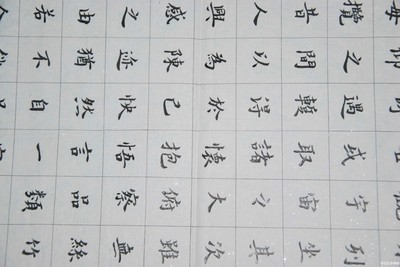 列坐其次雖無絲竹
宇宙之大俯察品類
或取諸懷抱悟言一
遇輒得於己快然自
仰之間以為陳迹猶不
每攬昔人興感之由若